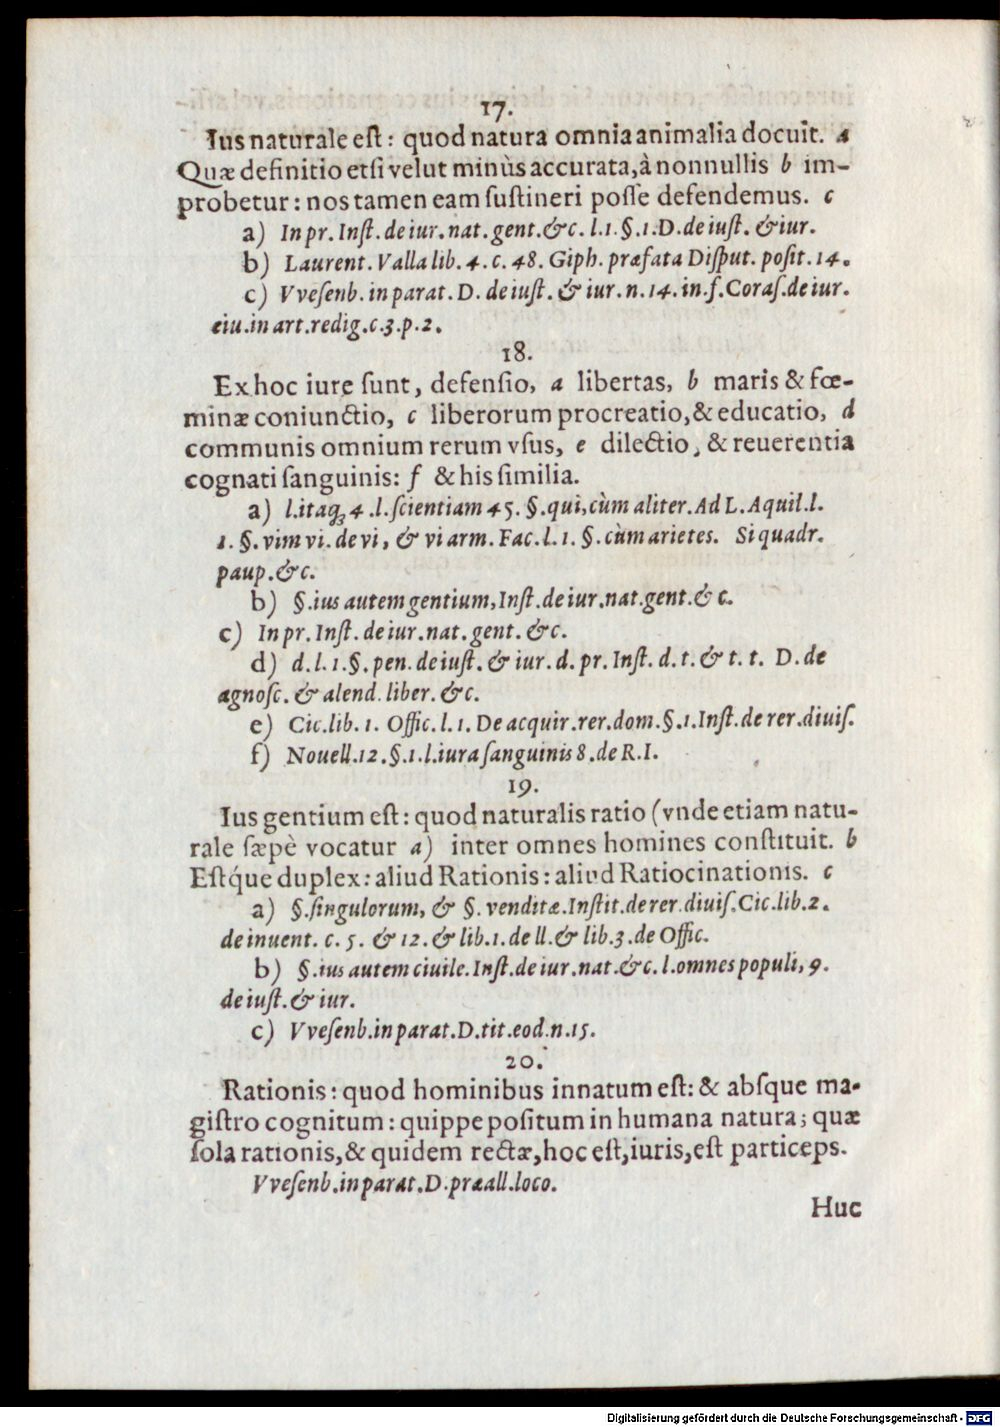 17.
Ius naturale est: quod natura omnia animalia docuit. a
Quæ definitio etsi velut minùs accurata, à nonnullis b im-
probetur: nos tamen eam sustineri posse defendemus. c
a) In pr. Inst. de iur. nat. gent. &c. l. 1. §. 1. D. de iust. & iur.
b) Laurent. Valla lib. 4. c. 48. Giph. præfata Disput. posit. 14.
c) Vvesenb. in parat. D. de iust. & iur. n. 14. in. f. Coras. de iur.
ciu. in art. redig. c. 3. p. 2.
18.
Ex hoc iure sunt, defensio, a libertas, b maris & fœ-
minæ coniunctio, c liberorum procreatio, & educatio, d
communis omnium rerum vsus, e dilectio, & reuerentia
cognati sanguinis: f & his similia.
a) l. itaq; 4. l. scientiam 45. §. qui, cùm aliter. Ad L. Aquil. l.
1. §. vim vi. de vi, & vi arm. Fac. l. 1. §. cùm arietes. Si quadr.
paup. &c.
b) §. ius autem gentium, Inst. de iur. nat. gent. & c.
c) In pr. Inst. de iur. nat. gent. &c.
d) d. l. 1. §. pen. de iust. & iur. d. pr. Inst. d. t. & t. t. D. de
agnosc. & alend. liber. &c.
e) Cic. lib. 1. Offic. l. 1. De acquir. rer. dom. §. 1. Inst. de rer. diuis.
f) Nouell. 12. §. 1. l. iura sanguinis 8. de R. I.
19.
Ius gentium est: quod naturalis ratio (vnde etiam natu-
rale sæpè vocatur a) inter omnes homines constituit. b
Estq́ue duplex: aliud Rationis: aliud Ratiocinationis. c
a) §. singulorum, & §. venditæ. Instit. de rer. diuis. Cic. lib. 2.
de inuent. c. 5. & 12. & lib. 1. de ll. & lib. 3. de Offic.
b) §. ius autem ciuile. Inst. de iur. nat. &c. l. omnes populi, 9.
de iust. & iur.
c) Vvesenb. in parat. D. tit. eod. n. 15.
20.
Rationis: quod hominibus innatum est: & absque ma-
gistro cognitum: quippe positum in humana natura; quæ
sola rationis, & quidem rectæ, hoc est, iuris, est particeps.
Vvesenb. in parat. D. præall. loco.
Huc
Digitalisierung gefördert durch die Deutsche Forschungsgemeinschaft - DFG